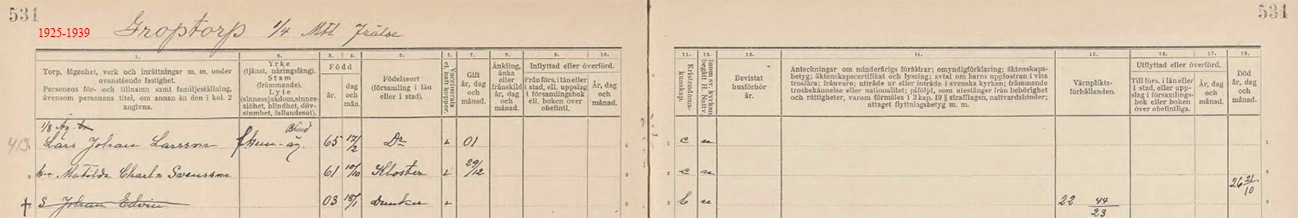 531
531
1925-1939
Groptorp 1/4 Mtl Frälse
1.
Torp, lägenhet, verk och inrättningar m. m. under
ovanstående fastighet.
Personens för- och tillnamn samt familjeställning,
ävensom personens titel, om annan än den i kol. 2
angivna.
2.
Yrke
(tjänst, näringsfång).
Stam
(främmande).
Lyte
(sinnessjukdom, sinnes-
slöhet, blindhet, döv-
stumhet, fallandesot).
Född
3.
år.
4.
dag
och
mån.
5.
Födelseort
(församling i län
eller i stad).
6.
7.
Gift
år, dag
och
månad.
8.
Änkling,
änka
eller
frånskild
år, dag
och
månad.
Inflyttad eller överförd.
9.
Från förs. i län eller
i stad, ell. uppslag
i församlingsbok
ell. boken över
obefintl.
10.
År, dag
och
månad.
11.
Kristendoms-
kunskap.
12.
13.
Bevistat
husförhör
år.
14.
Anteckningar om minderårigs föräldrar; omyndigförklaring; äktenskaps-
betyg; äktenskapscertifikat och lysning; avtal om barns uppfostran i viss
troslära; frånvaro; utträde ur eller inträde i svenska kyrkan; främmande
trosbekännelse eller nationalitet; påföljd, som utestänger från behörighet
och rättigheter, varom förmäles i 2 kap. 19 § strafflagen, nattvardshinder;
uttaget flyttningsbetyg m. m.
15.
Värnplikts-
förhållanden.
Utflyttad eller överförd.
16.
Till förs. i län eller
i stad, eller upp-
slag i församlings-
bok eller boken
över obefintliga.
17.
År, dag
och
månad.
18.
Död
år, dag
och
månad.
1/8 Äg.
413 Lars Johan Larsson Blind 65 12/2 D:o 01 c
Matilda Charl:a Svensson 61 10/10 Kloster 29/12 c 26 21/10
S. Johan Edvin 03 Dunker b 22 44/23